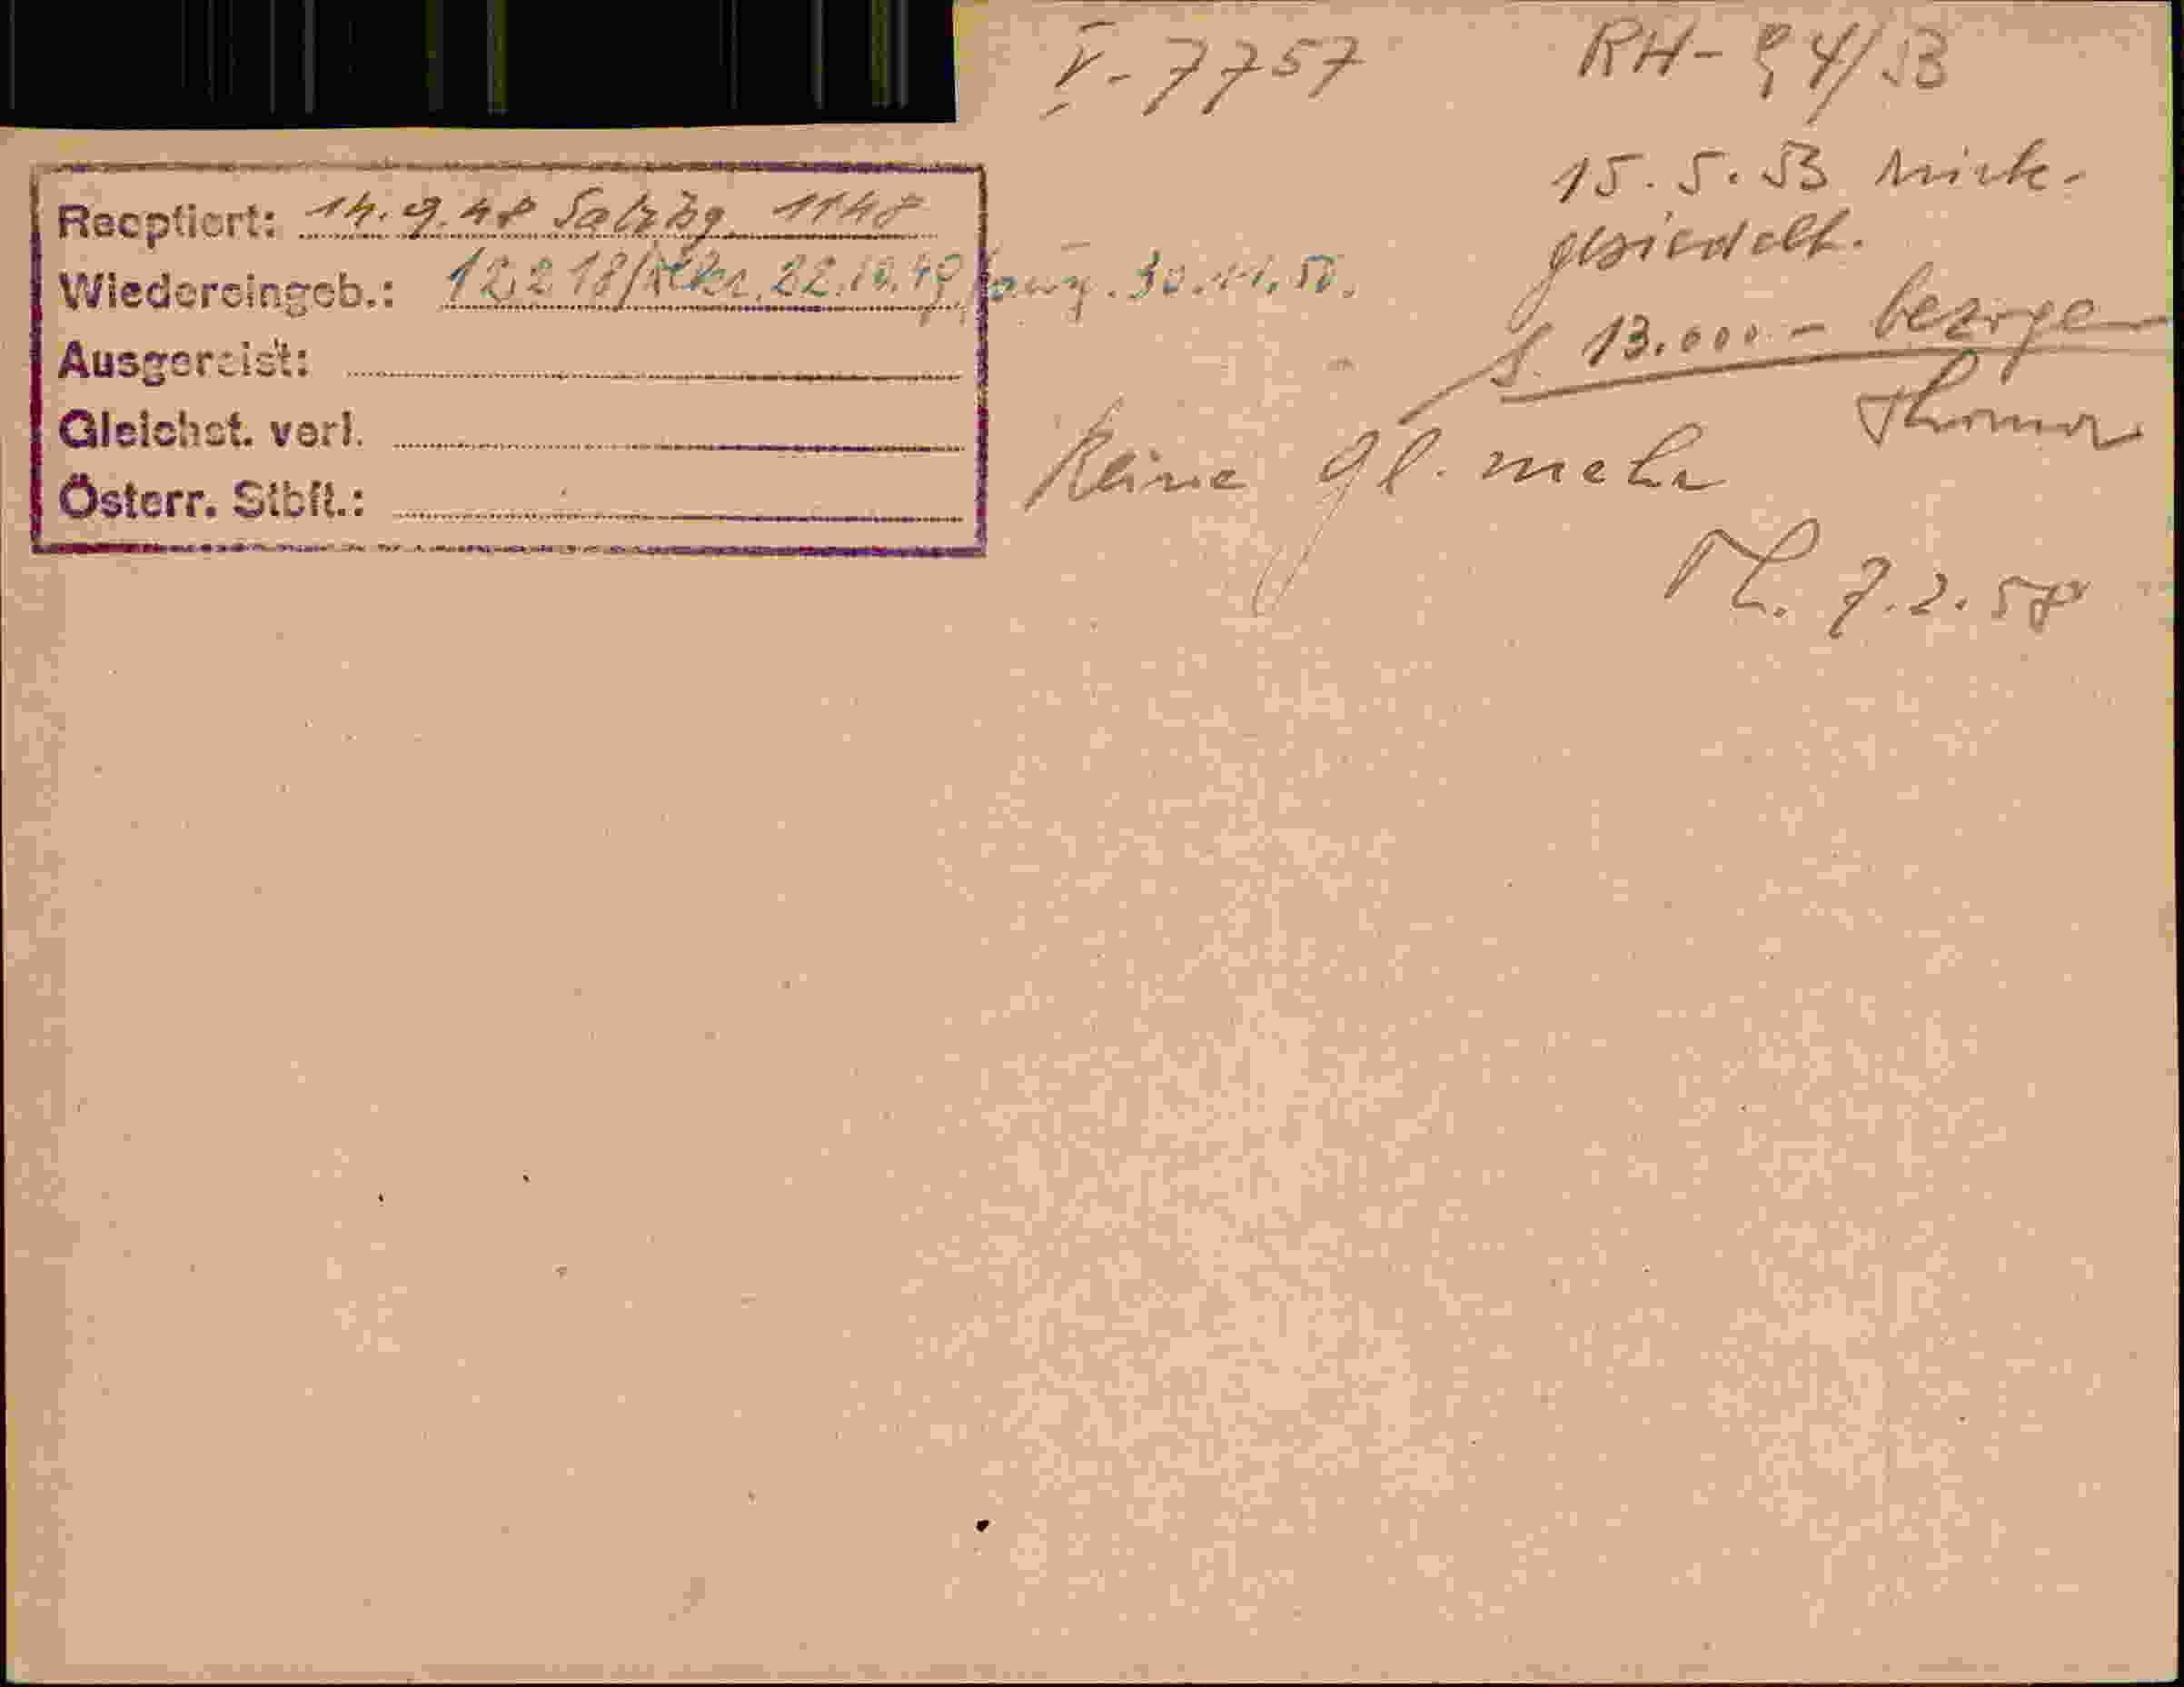 V-7757
RH-94/53
15.5.53 rück-
gesiedelt.
S. 13.000.- bezogen
Keine Gl. mehr
7.2.58
Recptiert: 14.9.48 Salzbg. 1148
Wiedereingeb.: 12218/ 22.10.49 30.11.50.
Ausgereist:
Gleichst. verl.
Österr. Stbft.: